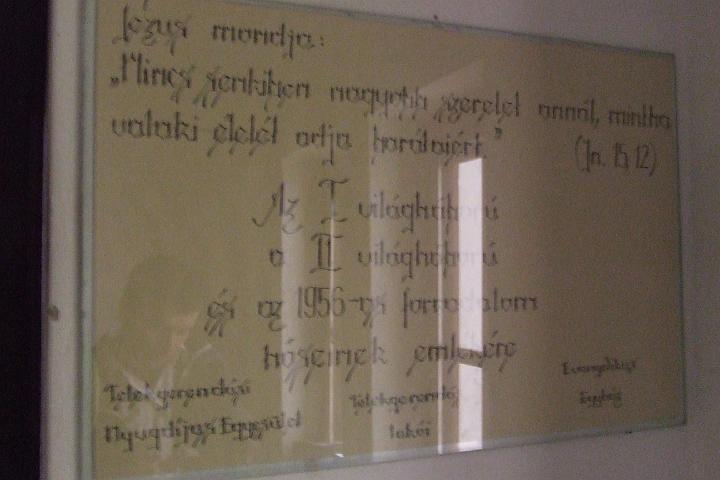 Jézus mondja:
„Nincs senkiben nagyobb szeretet annál, mintha
valaki életét adja barátaiért."
(Jn. 15, 12)
Az I világháború
a II világháború
és az 1956-os forradalom
hőseinek emlékére
Telekgerendási
Nyugdíjas Egyesület
Telekgerendás
lakói
Evangélikus
Egyház